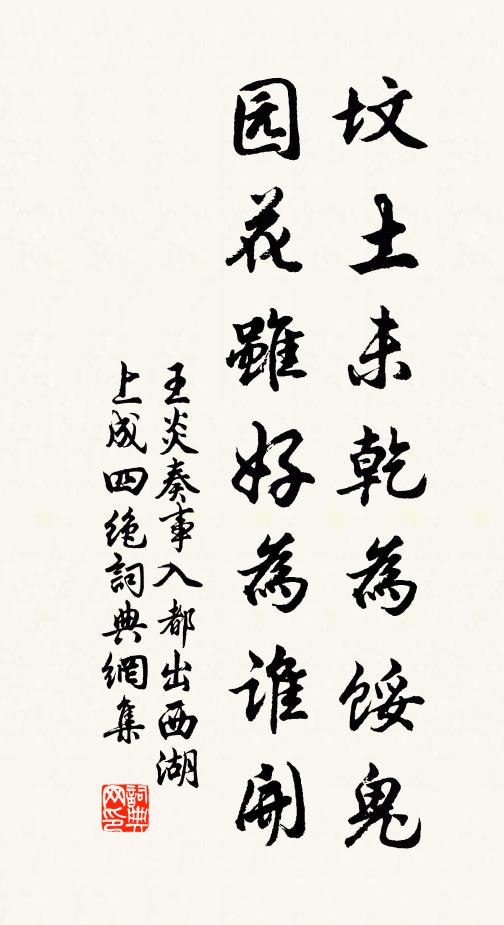 坟土未乾為餒鬼
园花雖好為谁開
王炎奏事入都出西湖
上成四绝詞典網集
詞典网印